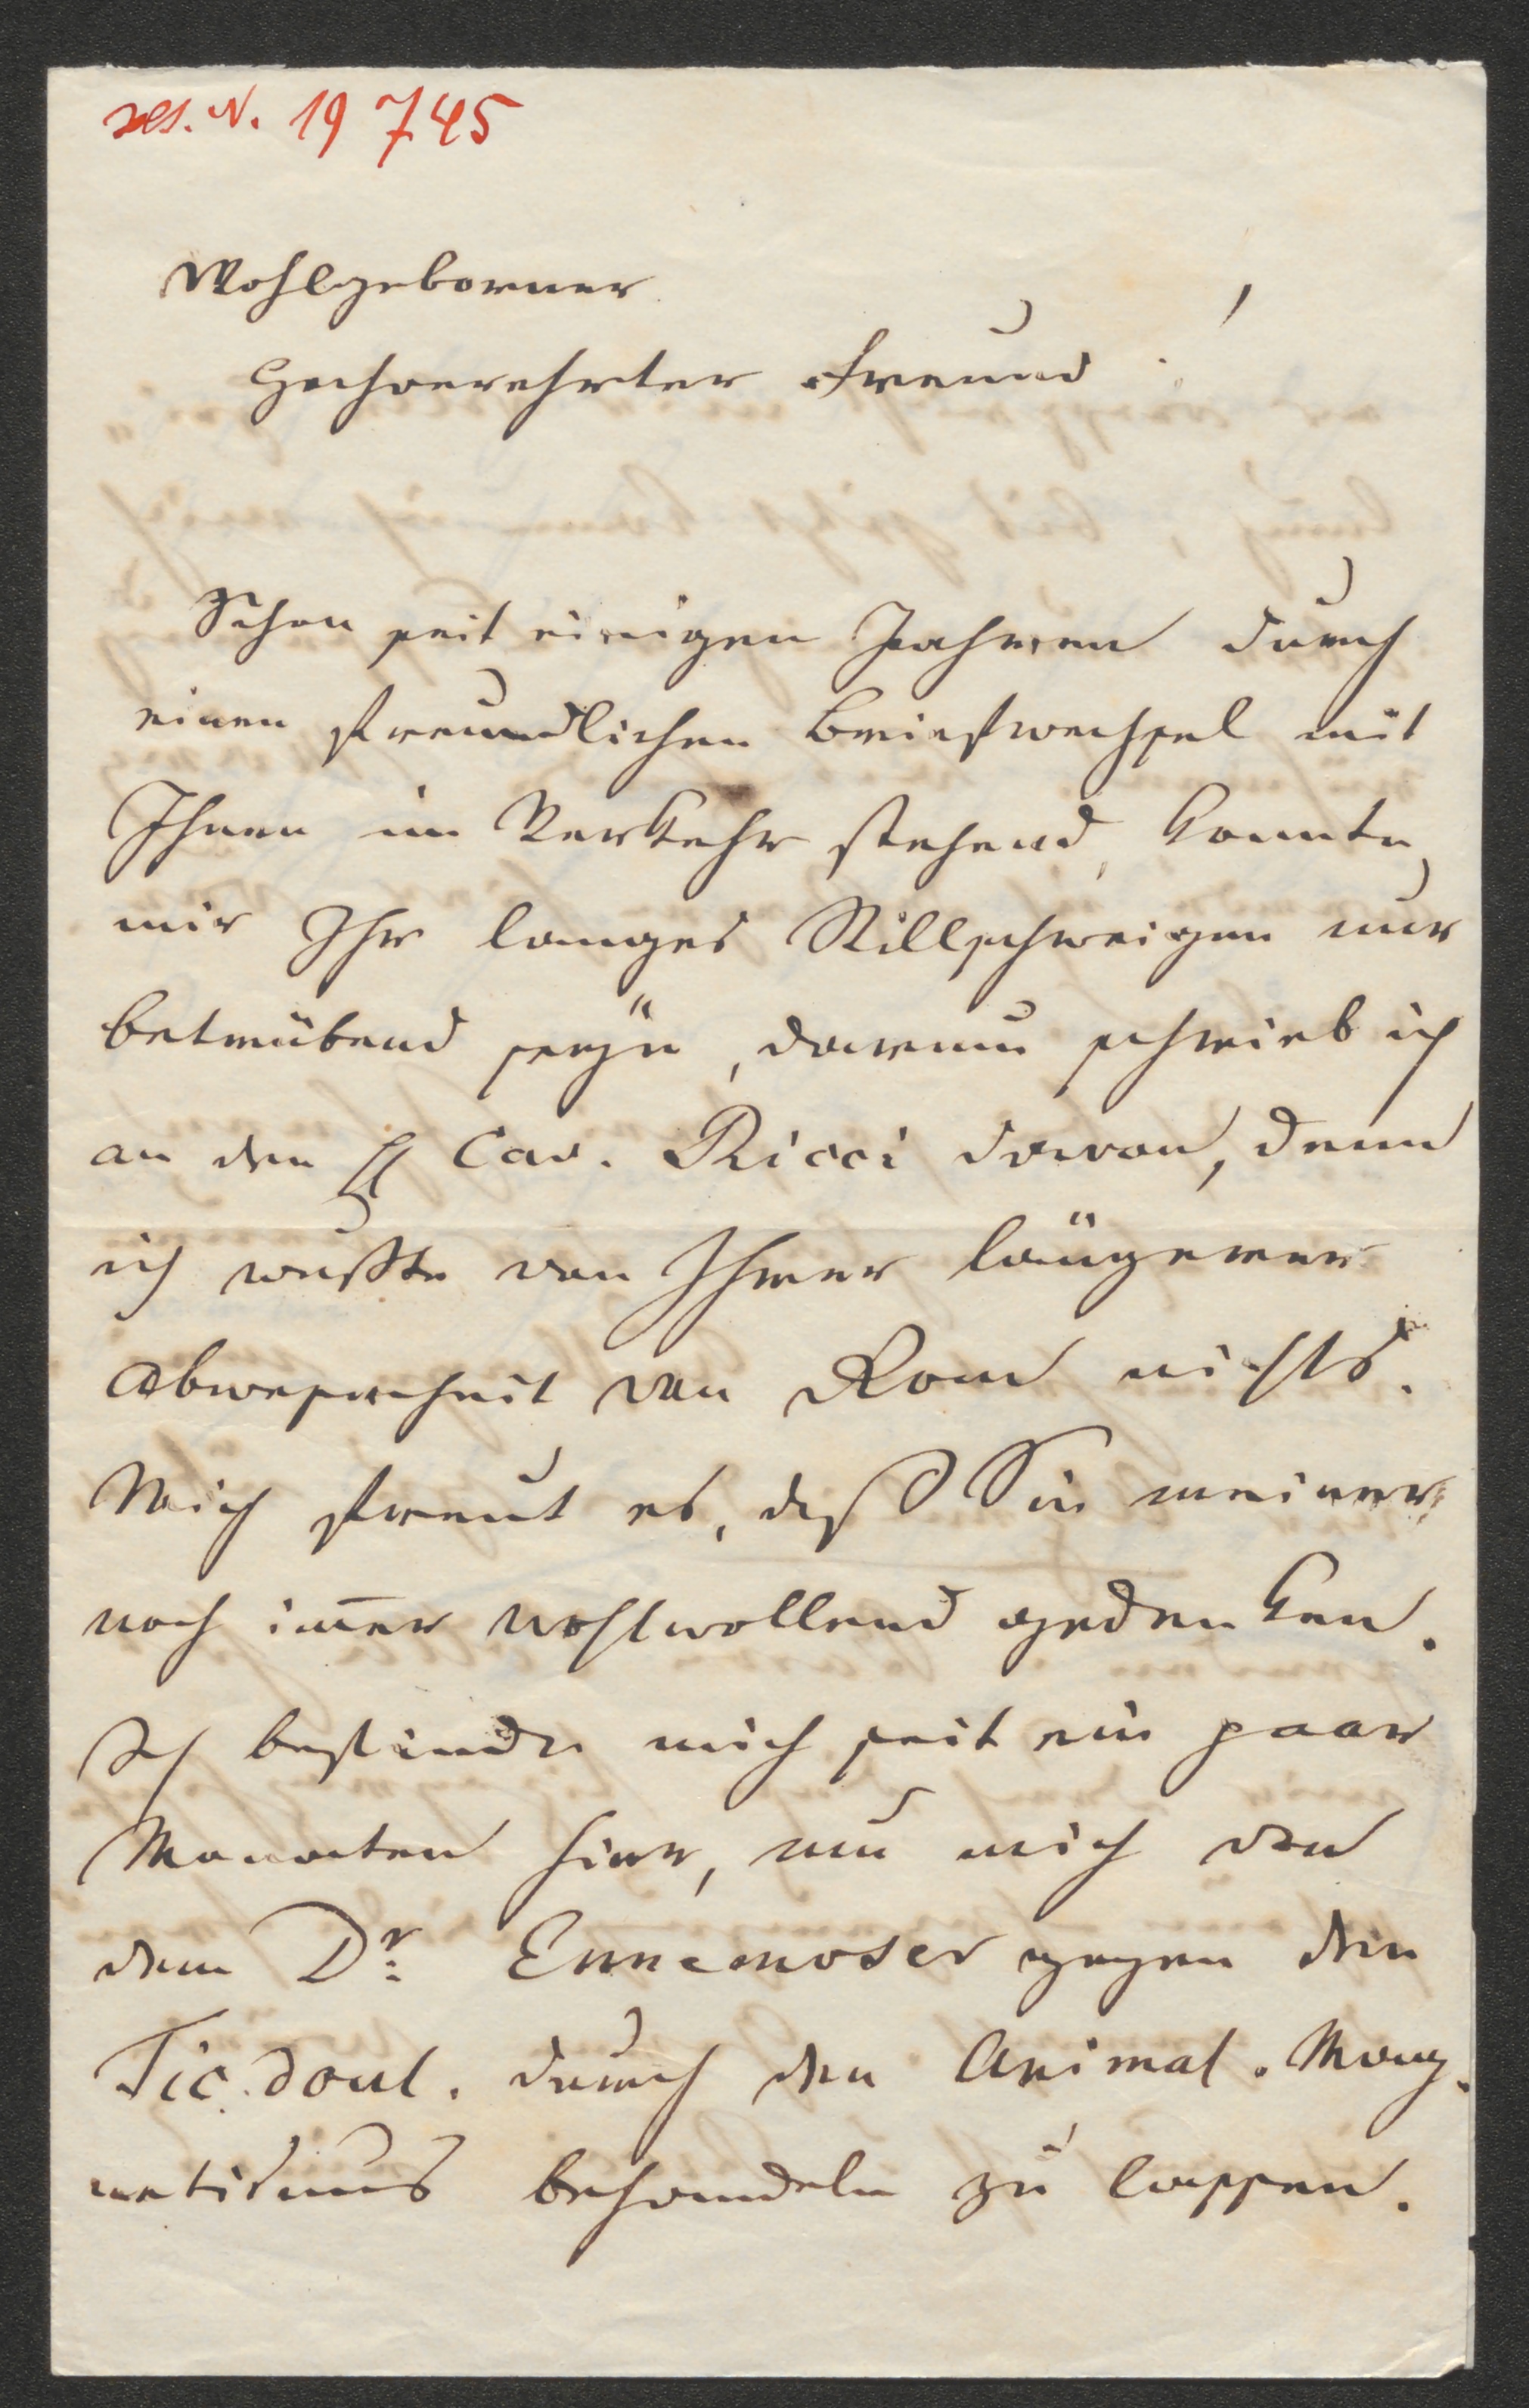 res. N. 19 745
Wohlgeborner
Hochverehrter Freund!
Schon seit einigen Jahren durch
einen freundlichen Briefwechsel mit
Ihnen im Verkehr stehend, konnte
mir Ihr langes Stillschweigen nur
betrübend seÿn, darum schrieb ich
an den H Cav. Ricci davon, denn
ich wußte von Ihrer längerer
Abwesenheit von Rom nichts.
Mich freut es, daß Sie meiner
noch im̄er wohlwollend gedenken.
Ich befinde mich seit ein paar
Monaten hier, um mich von
dem Dr. Ennemoser gegen den
Tic. doul. durch den Animal. Mag-
netismus behandeln zu lassen.